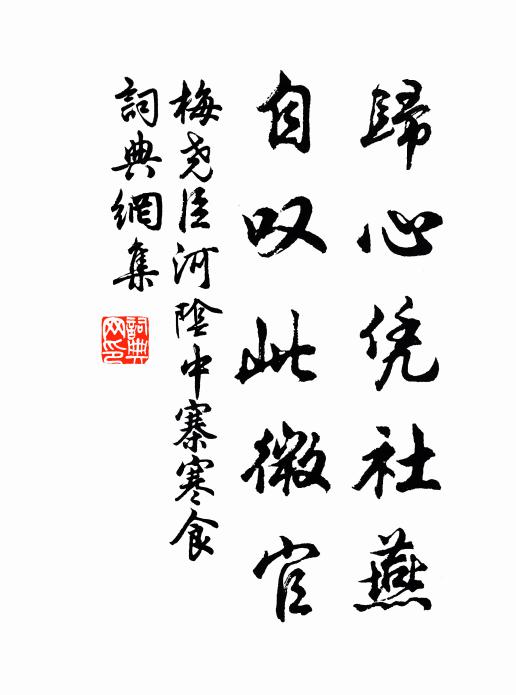 歸心凭社燕
自叹此微官
梅尧臣河陰中寨寒食
詞典網集
詞典网印